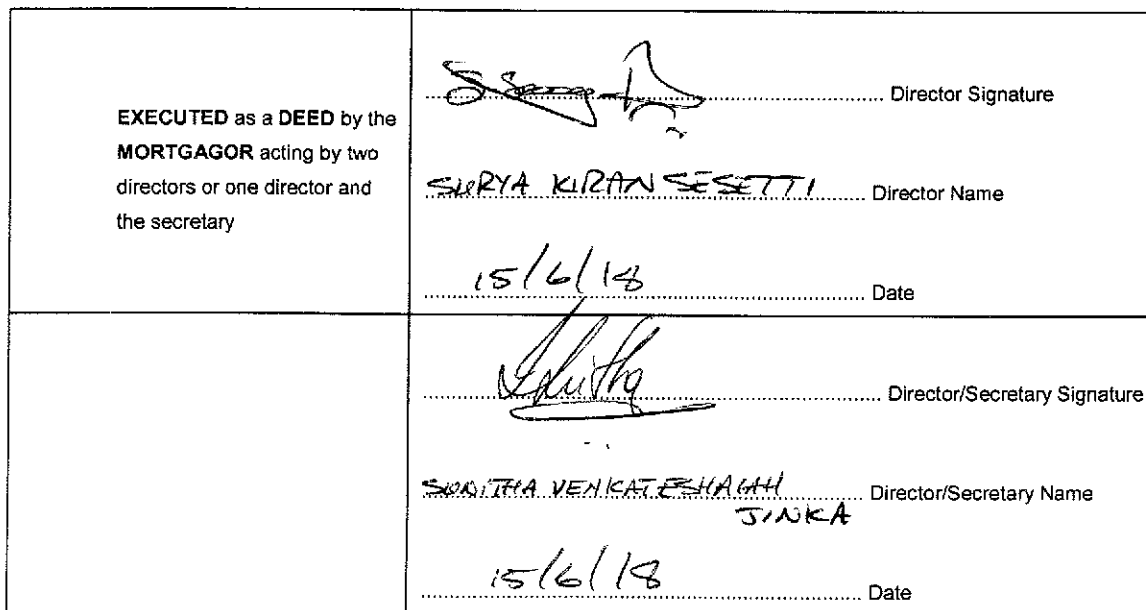 EXECUTED as a DEED by the
MORTGAGOR acting by two
directors or one director and
the secretary
Director Signature
SURYA KIRAN SESETTI Director Name
15/6/18 Date
Director/Secretary Signature
SUNITHA Director/Secretary Name
JINKA
15/6/18 Date